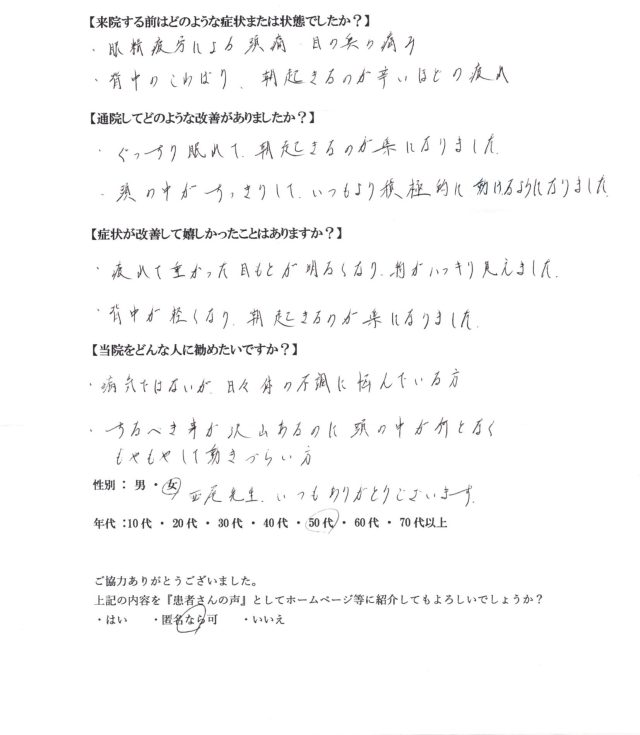 【来院する前はどのような症状または状態でしたか？】
・眼精疲労による頭痛 目の奥の痛み
・背中のこわばり、朝起きるのが辛いほどの疲れ
【通院してどのような改善がありましたか？】
・ぐっすり眠れて、朝起きるのが楽になりました。
・頭の中がすっきりして、いつもより積極的に動けるようになりました。
【症状が改善して嬉しかったことはありますか？】
・疲れて重かった目もとが明るくなり、 がハッキリ見えました。
・背中が軽くなり、朝起きるのが楽になりました。
【当院をどんな人に勧めたいですか？】
・病気ではないが、日々体の不調に悩んでいる方
・するべき事が沢山あるのに頭の中が何となく
もやもやして動きづらい方
性別：男・女 西尾先生、いつもありがとうございます。
年代：10代・20代・30代・40代・50代・60代・70代以上
ご協力ありがとうございました。
上記の内容を『患者さんの声』としてホームページ等に紹介してもよろしいでしょうか？
・はい ・匿名なら可 ・いいえ